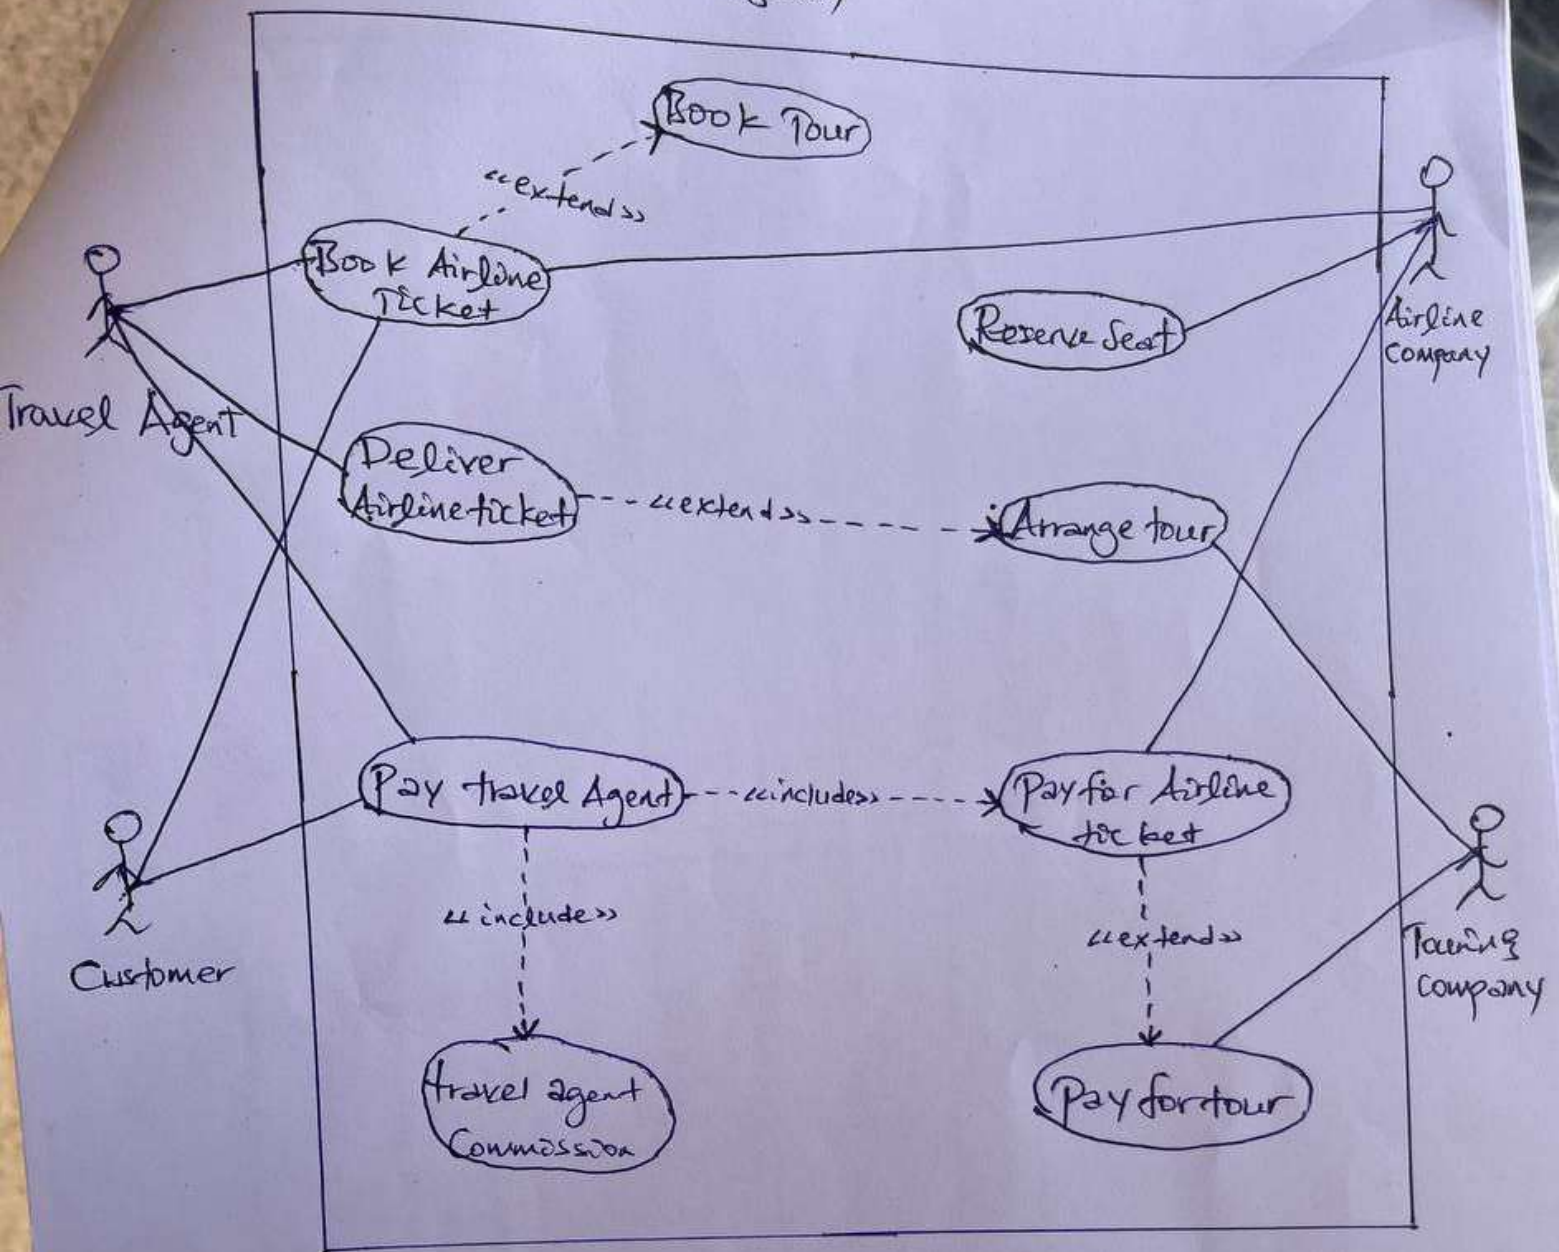 Book Tour
<<extends>>
Book Airline
Ticket
Reserve Seat
Airline
Company
Travel Agent
Deliver
Airline ticket
<<extends>>
Arrange tour
Pay travel Agent
<<includes>>
Pay for Airline
ticket
<<include>>
<<extends>>
Customer
Touring
Company
travel agent
Commission
Pay for tour